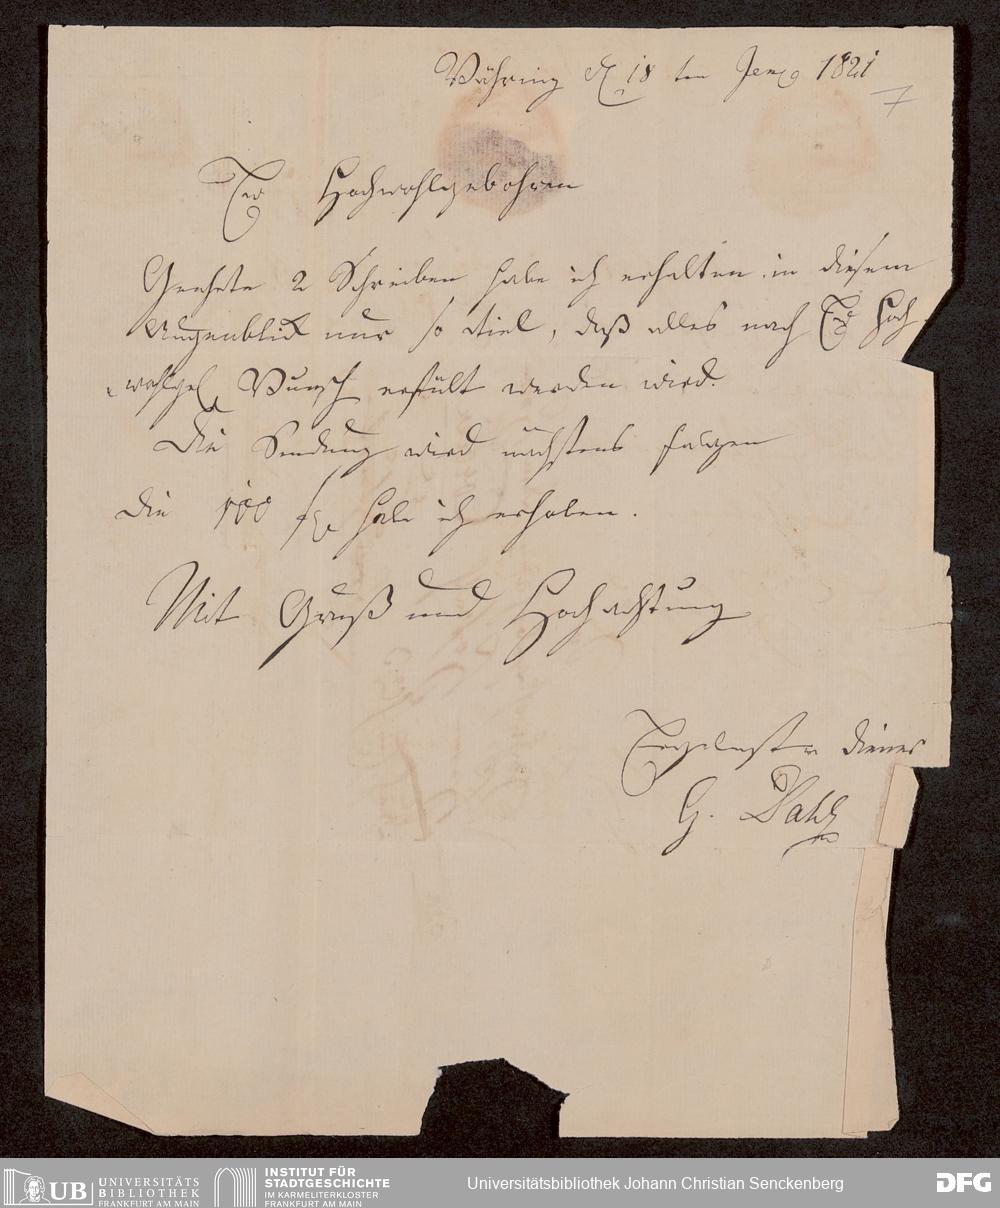 Währing d 18 ten Jen 1821
7
Ew Hochwohlgebohren
Geehrte 2 Schreiben habe ich erhalten in diesem
Augenblick nur so viel, daß alles nach Ew Hoch
wohlgeb Wunsch erfült werden wird.
Die Sendung wird nächstens folgen
die 100 habe ich erhoben.
Mit Gruß und Hochachtung
Ergebenster Diener
G.
UB UNIVERSITÄTS
BIBLIOTHEK
FRANKFURT AM MAIN
INSTITUT FÜR
STADTGESCHICHTE
IM KARMELITERKLOSTER
FRANKFURT AM MAIN
Universitätsbibliothek Johann Christian Senckenberg
DFG